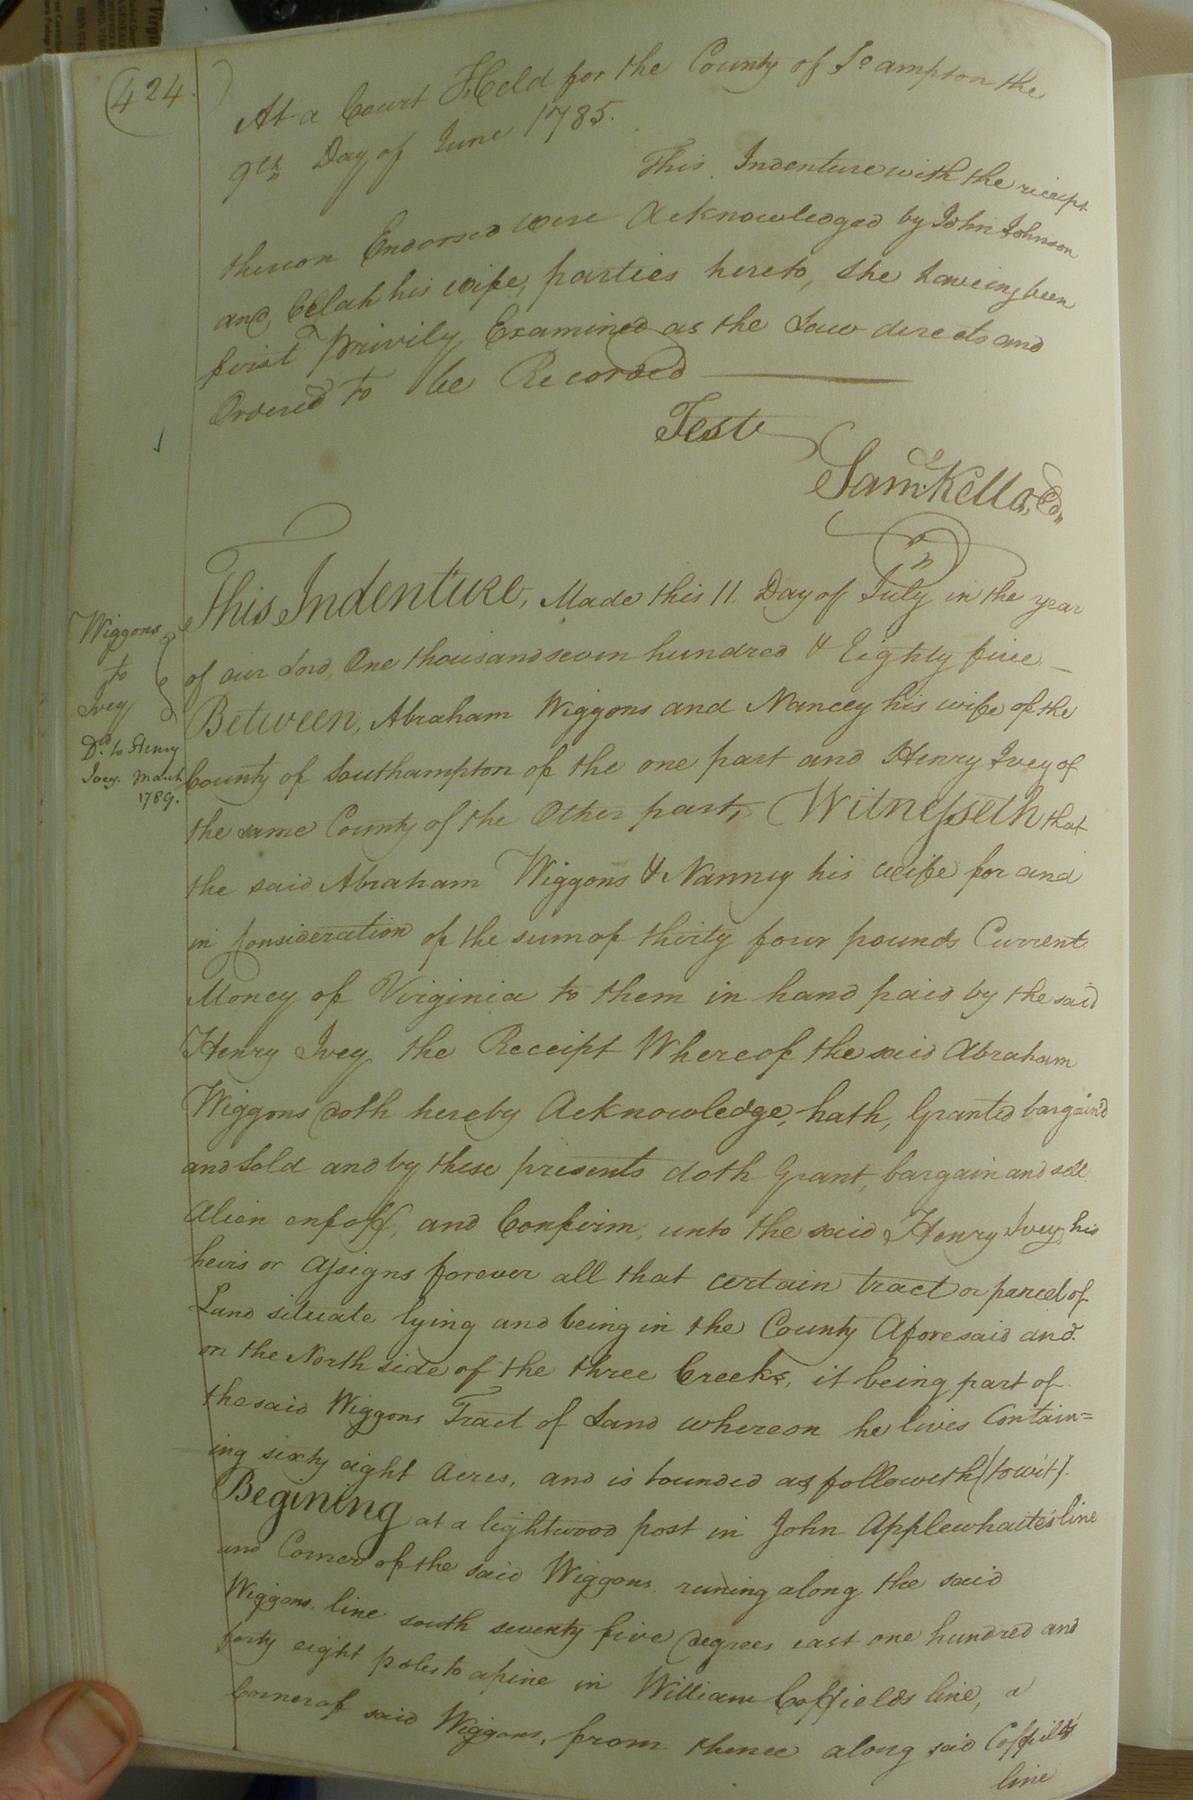 424.
At a Court Held for the County of So ampton the
9th Day of June 1785.
This Indenture with the reciept
thereon Endorsed were Acknowledged by John Johnson
and Celah his wife, parties hereto, She haveing been
first Privily Examined as the Law directs and
Ordered to be Recorded
Teste
Saml. Kello, C
Wiggons
to
Ivey
Dd. to Henry
Ivey. March
1789.
This Indenture, Made this 11. Day of July in the year
of our Lord, One thousand seven hundred & Eighty five
Between, Abraham Wiggons and Nancey his wife of the
County of Southampton of the one part and Henry Ivey of
the same County of the Other part, Witnesseth that
the said Abraham Wiggons & Nanney his wife for and
in Consideration of the sum of thirty four pounds Current
Money of Virginia to them in hand paid by the said
Henry Ivey, the Receipt Whereof the said Abraham
Wiggons doth hereby Acknowledge, hath, Granted bargain'd
and Sold and by these presents doth Grant, bargain and sell
Alien enfoff, and Confirm, unto the said Henry Ivey, his
heirs or Assigns forever all that certain tract or parcel of
Land situate lying and being in the County Aforesaid and
on the North side of the three Creeks, it being part of
the said Wiggons Tract of Land whereon he lives Contain=
ing sixty eight Acres, and is bounded as followeth (towit).
Begining at a lightwood post in John Applewhaite's line
and Corner of the said Wiggons runing along the said
Wiggons line south seventy five degrees east one hundred and
forty eight poles to a pine in William Coffields line, a
Corner of said Wiggons, from thence along said Coffields
line